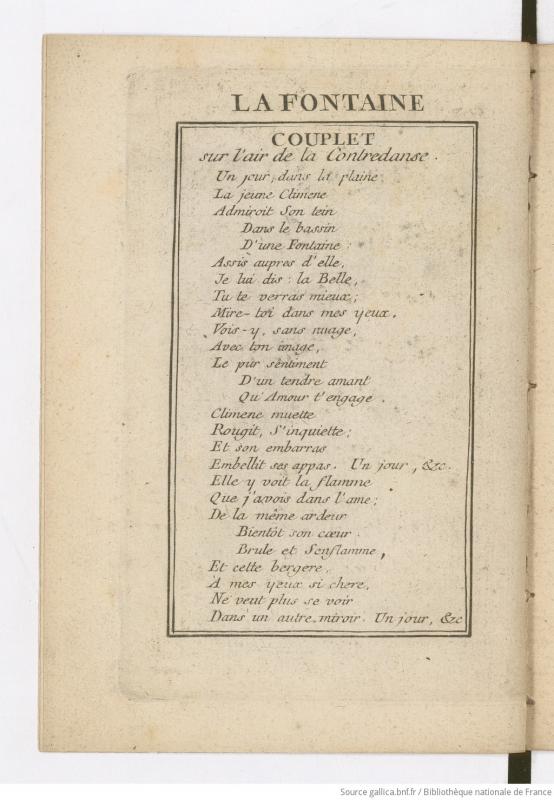 LA FONTAINE
COUPLET
sur l'air de la Contredanse.
Un jour, dans la plaine
La jeune Climene
Admiroit Son tein
Dans le bassin
D'une Fontaine:
Assis aupres d'elle,
Je lui dis: la Belle,
Tu te verras mieux;
Mire-toi dans mes yeux.
Vois-y, sans nuage,
Avec ton image,
Le pur sentiment
D'un tendre amant
Qu'Amour t'engage.
Climene muette
Rougit, S'inquiette;
Et son embarras
Embellit ses appas. Un jour, &c.
Elle y voit la flamme
Que j'avois dans l'ame;
De la même ardeur
Bientôt son cœur
Brule et Senflamme,
Et cette bergere,
A mes yeux si chere,
Ne veut plus se voir
Dans un autre miroir. Un jour, &c
Source gallica.bnf.fr / Bibliothèque nationale de France